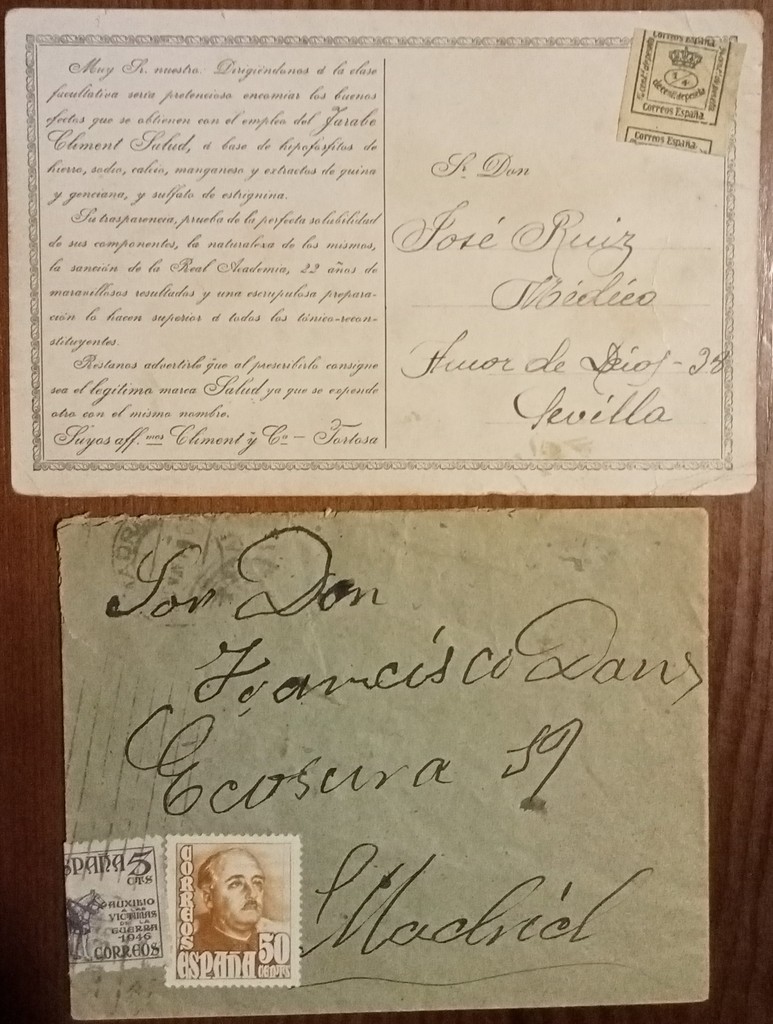 Muy Sr. nuestro: Dirigiéndonos á la clase
facultativa sería pretencioso encomiar los buenos
efectos que se obtienen con el empleo del Jarabe
Climent Salud, á base de hipofosfitos de
hierro, sodio, calcio, manganeso y extractos de quina
y genciana, y sulfato de estrignina.
Su trasparencia, prueba de la perfecta solubilidad
de sus componentes, la naturaleza de los mismos,
la sanción de la Real Academia, 22 años de
maravillosos resultados y una escrupulosa prepara-
ción lo hacen superior á todos los tónico-recon-
stituyentes.
Réstanos advertirle que al prescribirlo consigne
sea el legítimo marca Salud ya que se expende
otro con el mismo nombre.
Suyos aff.mos Climent y Cª – Tortosa
Correos España
1/4
de cent. de peseta
Correos España.
Correos España.
Sr. Don
José Ruiz
Médico
Amor de Dios - 38
Sevilla
Sor Don
Francisco Dans
Ecosura 59
Madrid
ESPAÑA 5
CTS
AUXILIO
A LAS
VICTIMAS
DE LA
GUERRA
1946
CORREOS
CORREOS
ESPAÑA
50
CENTS